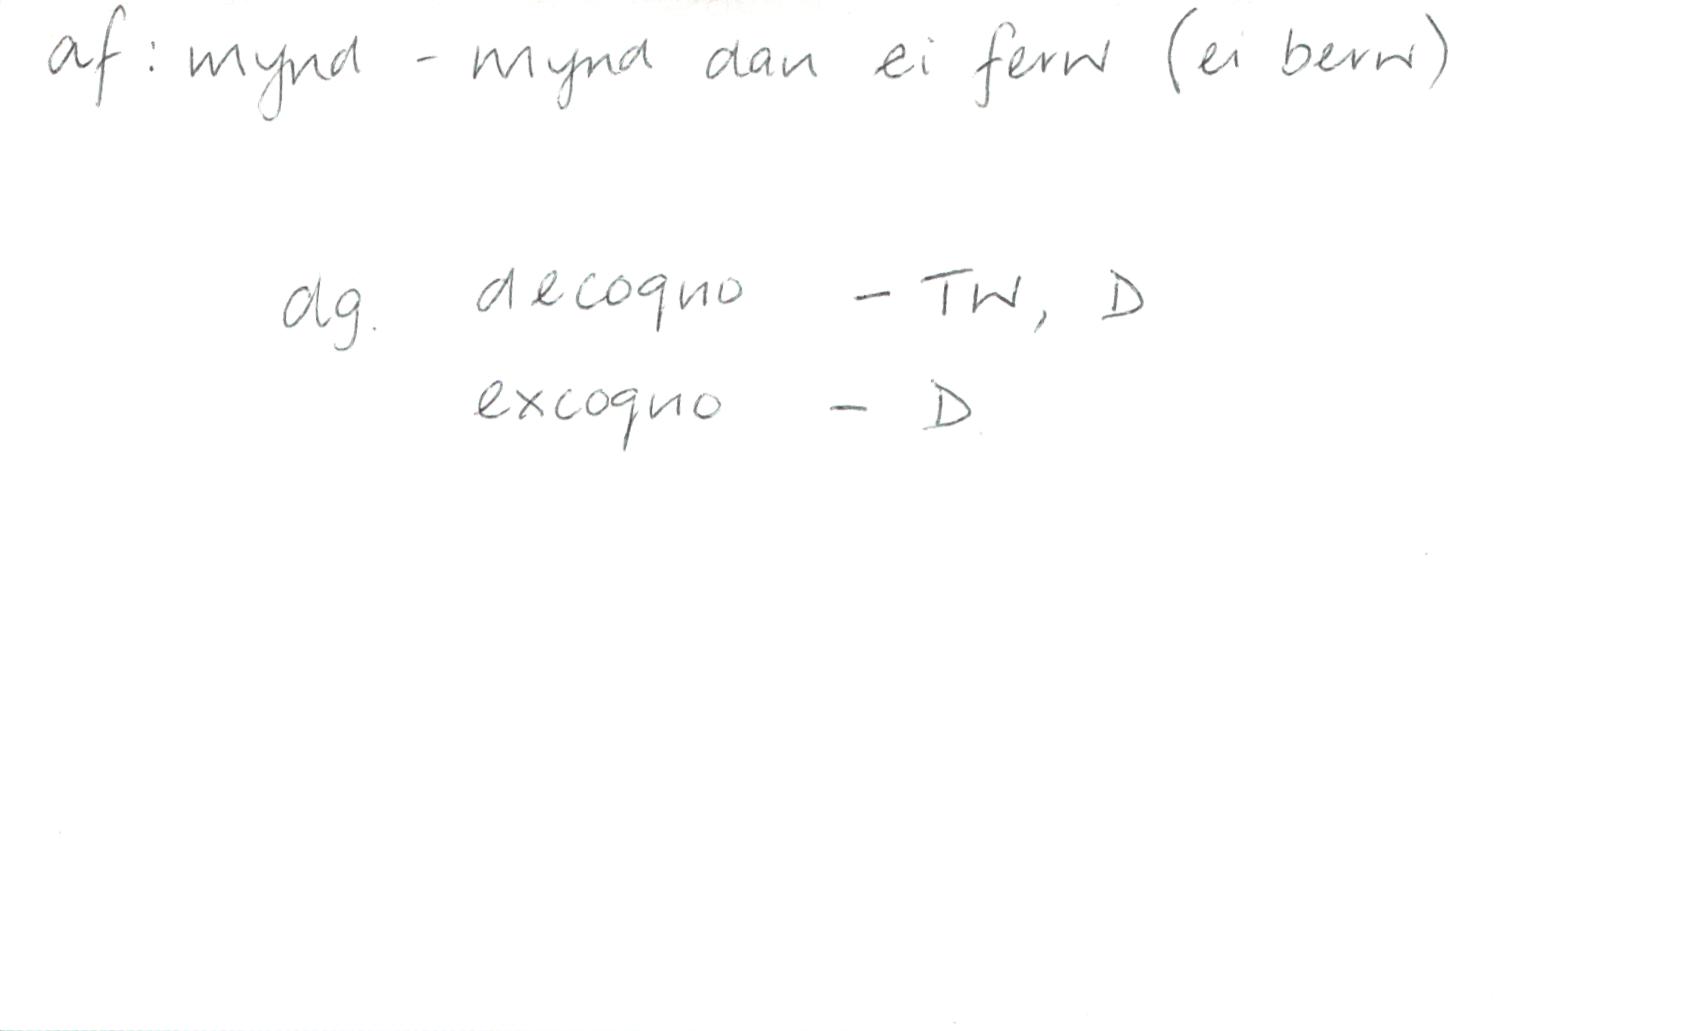 af: mynd - mynd dan ei ferw (ei berw)
dg. decoquo - TW, D
excoquo - D